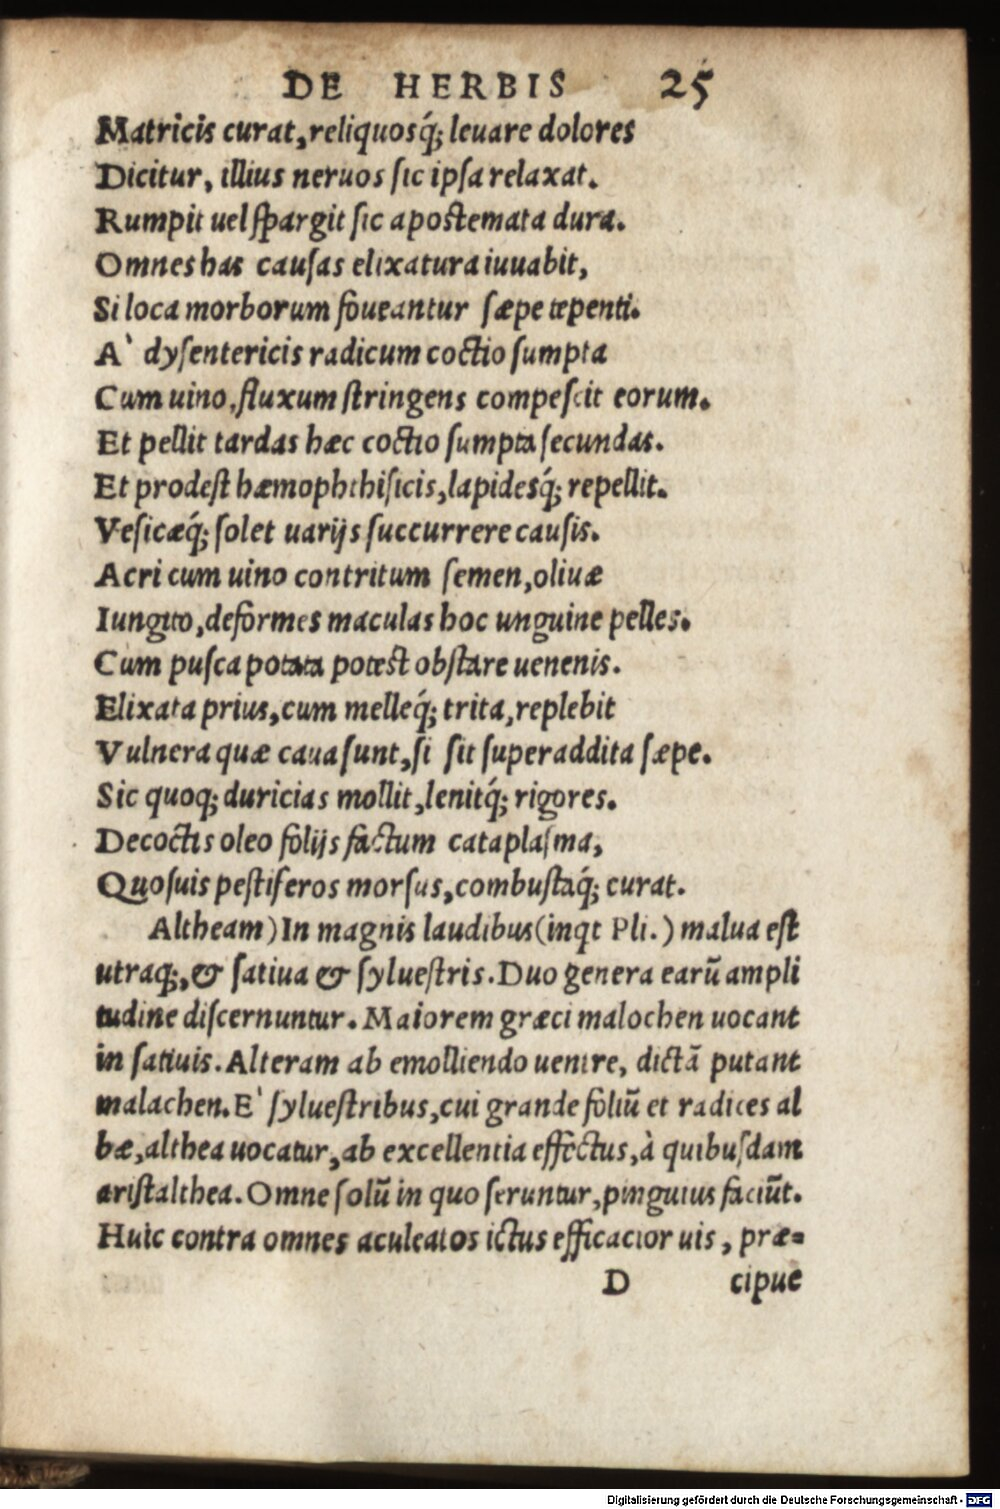 DE HERBIS 25
Matricis curat, reliquosq́; leuare dolores
Dicitur, illius neruos sic ipsa relaxat.
Rumpit uel spargit sic apostemata dura.
Omnes has causas elixatura iuuabit,
Si loca morborum foueantur sæpe tepenti.
A` dysentericis radicum coctio sumpta
Cum uino, fluxum stringens compescit eorum.
Et pellit tardas hæc coctio sumpta secundas.
Et prodest hæmophthisicis, lapidesq́; repellit.
Vesicæq́; solet uarijs succurrere causis.
Acri cum uino contritum semen, oliuæ
Iungito, deformes maculas hoc unguine pelles.
Cum pusca potata potest obstare uenenis.
Elixata prius, cum melleq́; trita, replebit
Vulnera quæ caua sunt, si sit superaddita sæpe.
Sic quoq; duricias mollit, lenitq́; rigores.
Decoctis oleo folijs factum cataplasma,
Quosuis pestiferos morsus, combustaq́; curat.
Altheam) In magnis laudibus (inqt Pli.) malua est
utraq;, & satiua & syluestris. Duo genera earū ampli
tudine discernuntur. Maiorem græci malochen uocant
in satiuis. Alteram ab emolliendo uentre, dictā putant
malachen. E` syluestribus, cui grande foliū et radices al
bæ, althea uocatur, ab excellentia effectus, à quibusdam
aristalthea. Omne solū in quo seruntur, pinguius faciūt.
Huic contra omnes aculeatos ictus efficacior uis, præ-
D cipue
Digitalisierung gefördert durch die Deutsche Forschungsgemeinschaft - DFG